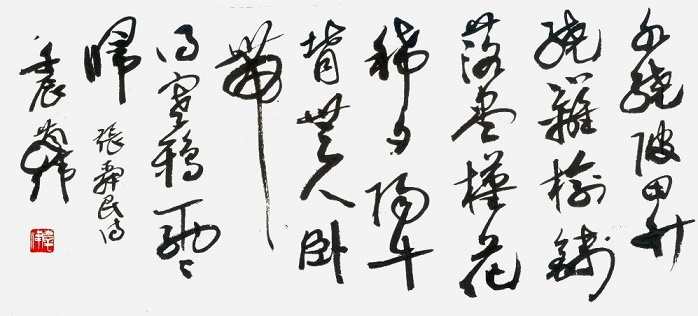 水繞陂田竹
繞籬榆錢
落盡槿花
稀夕陽牛
背無人卧
帶
得寒鴉兩々
歸 張舜民詩
壬辰